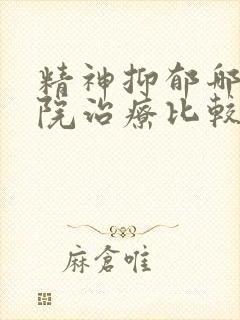 精神抑郁那
院治療比較
麻倉唯